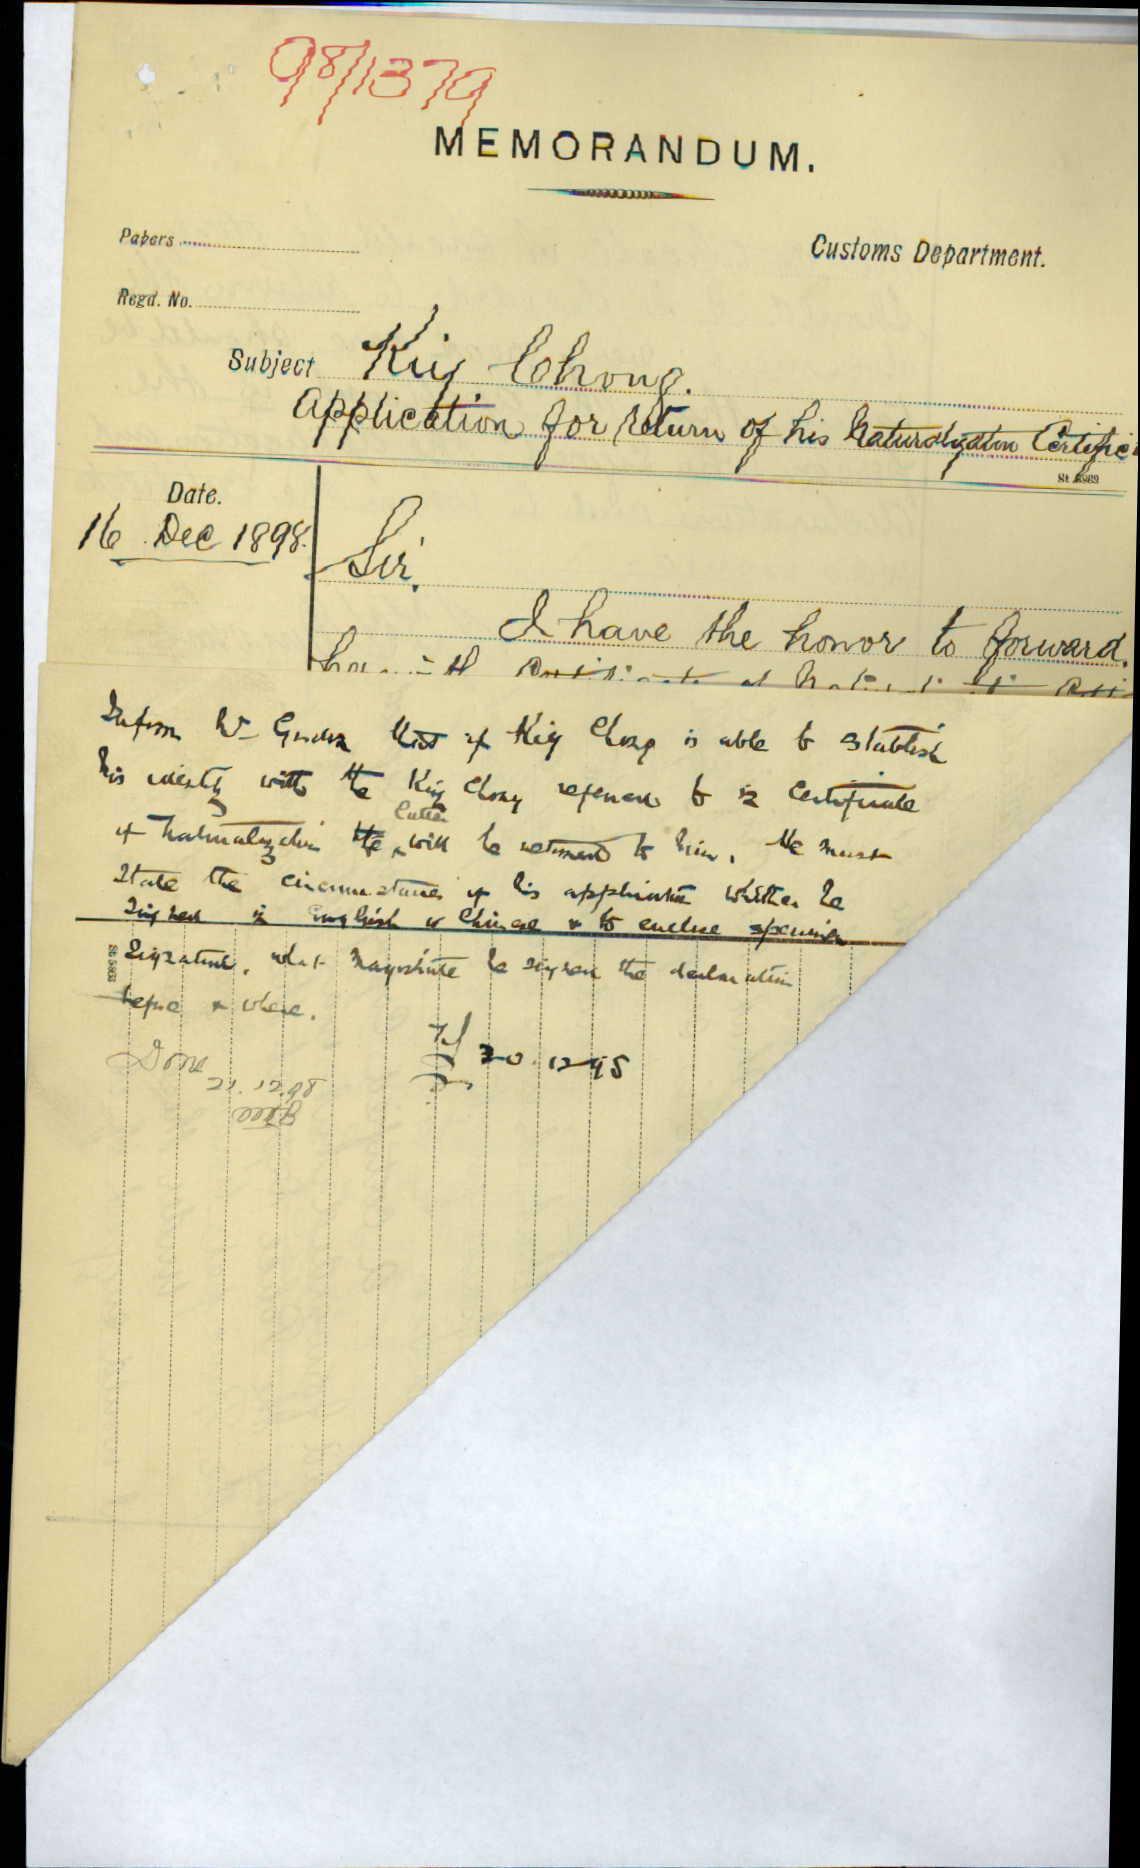 98/1379
MEMORANDUM.
Papers
Customs Department.
Regd. No.
Subject Kig Chong.
Application for return of his Naturalization Certific
St 3969
Date.
16 Dec 1898.
Sir,
I have the honor to forward
Inform Mr Gordon that if Kig Chong is able to establish
his identity with the Kig Chong referred to in Certificate
of Naturalization the latter will be returned to him. He must
State the circumstances of his application whether he
signed in English or Chinese & to enclose specimen
Signature, what Magistrate he signed the declaration
before & where.
Done
21.12.98
20.12.98